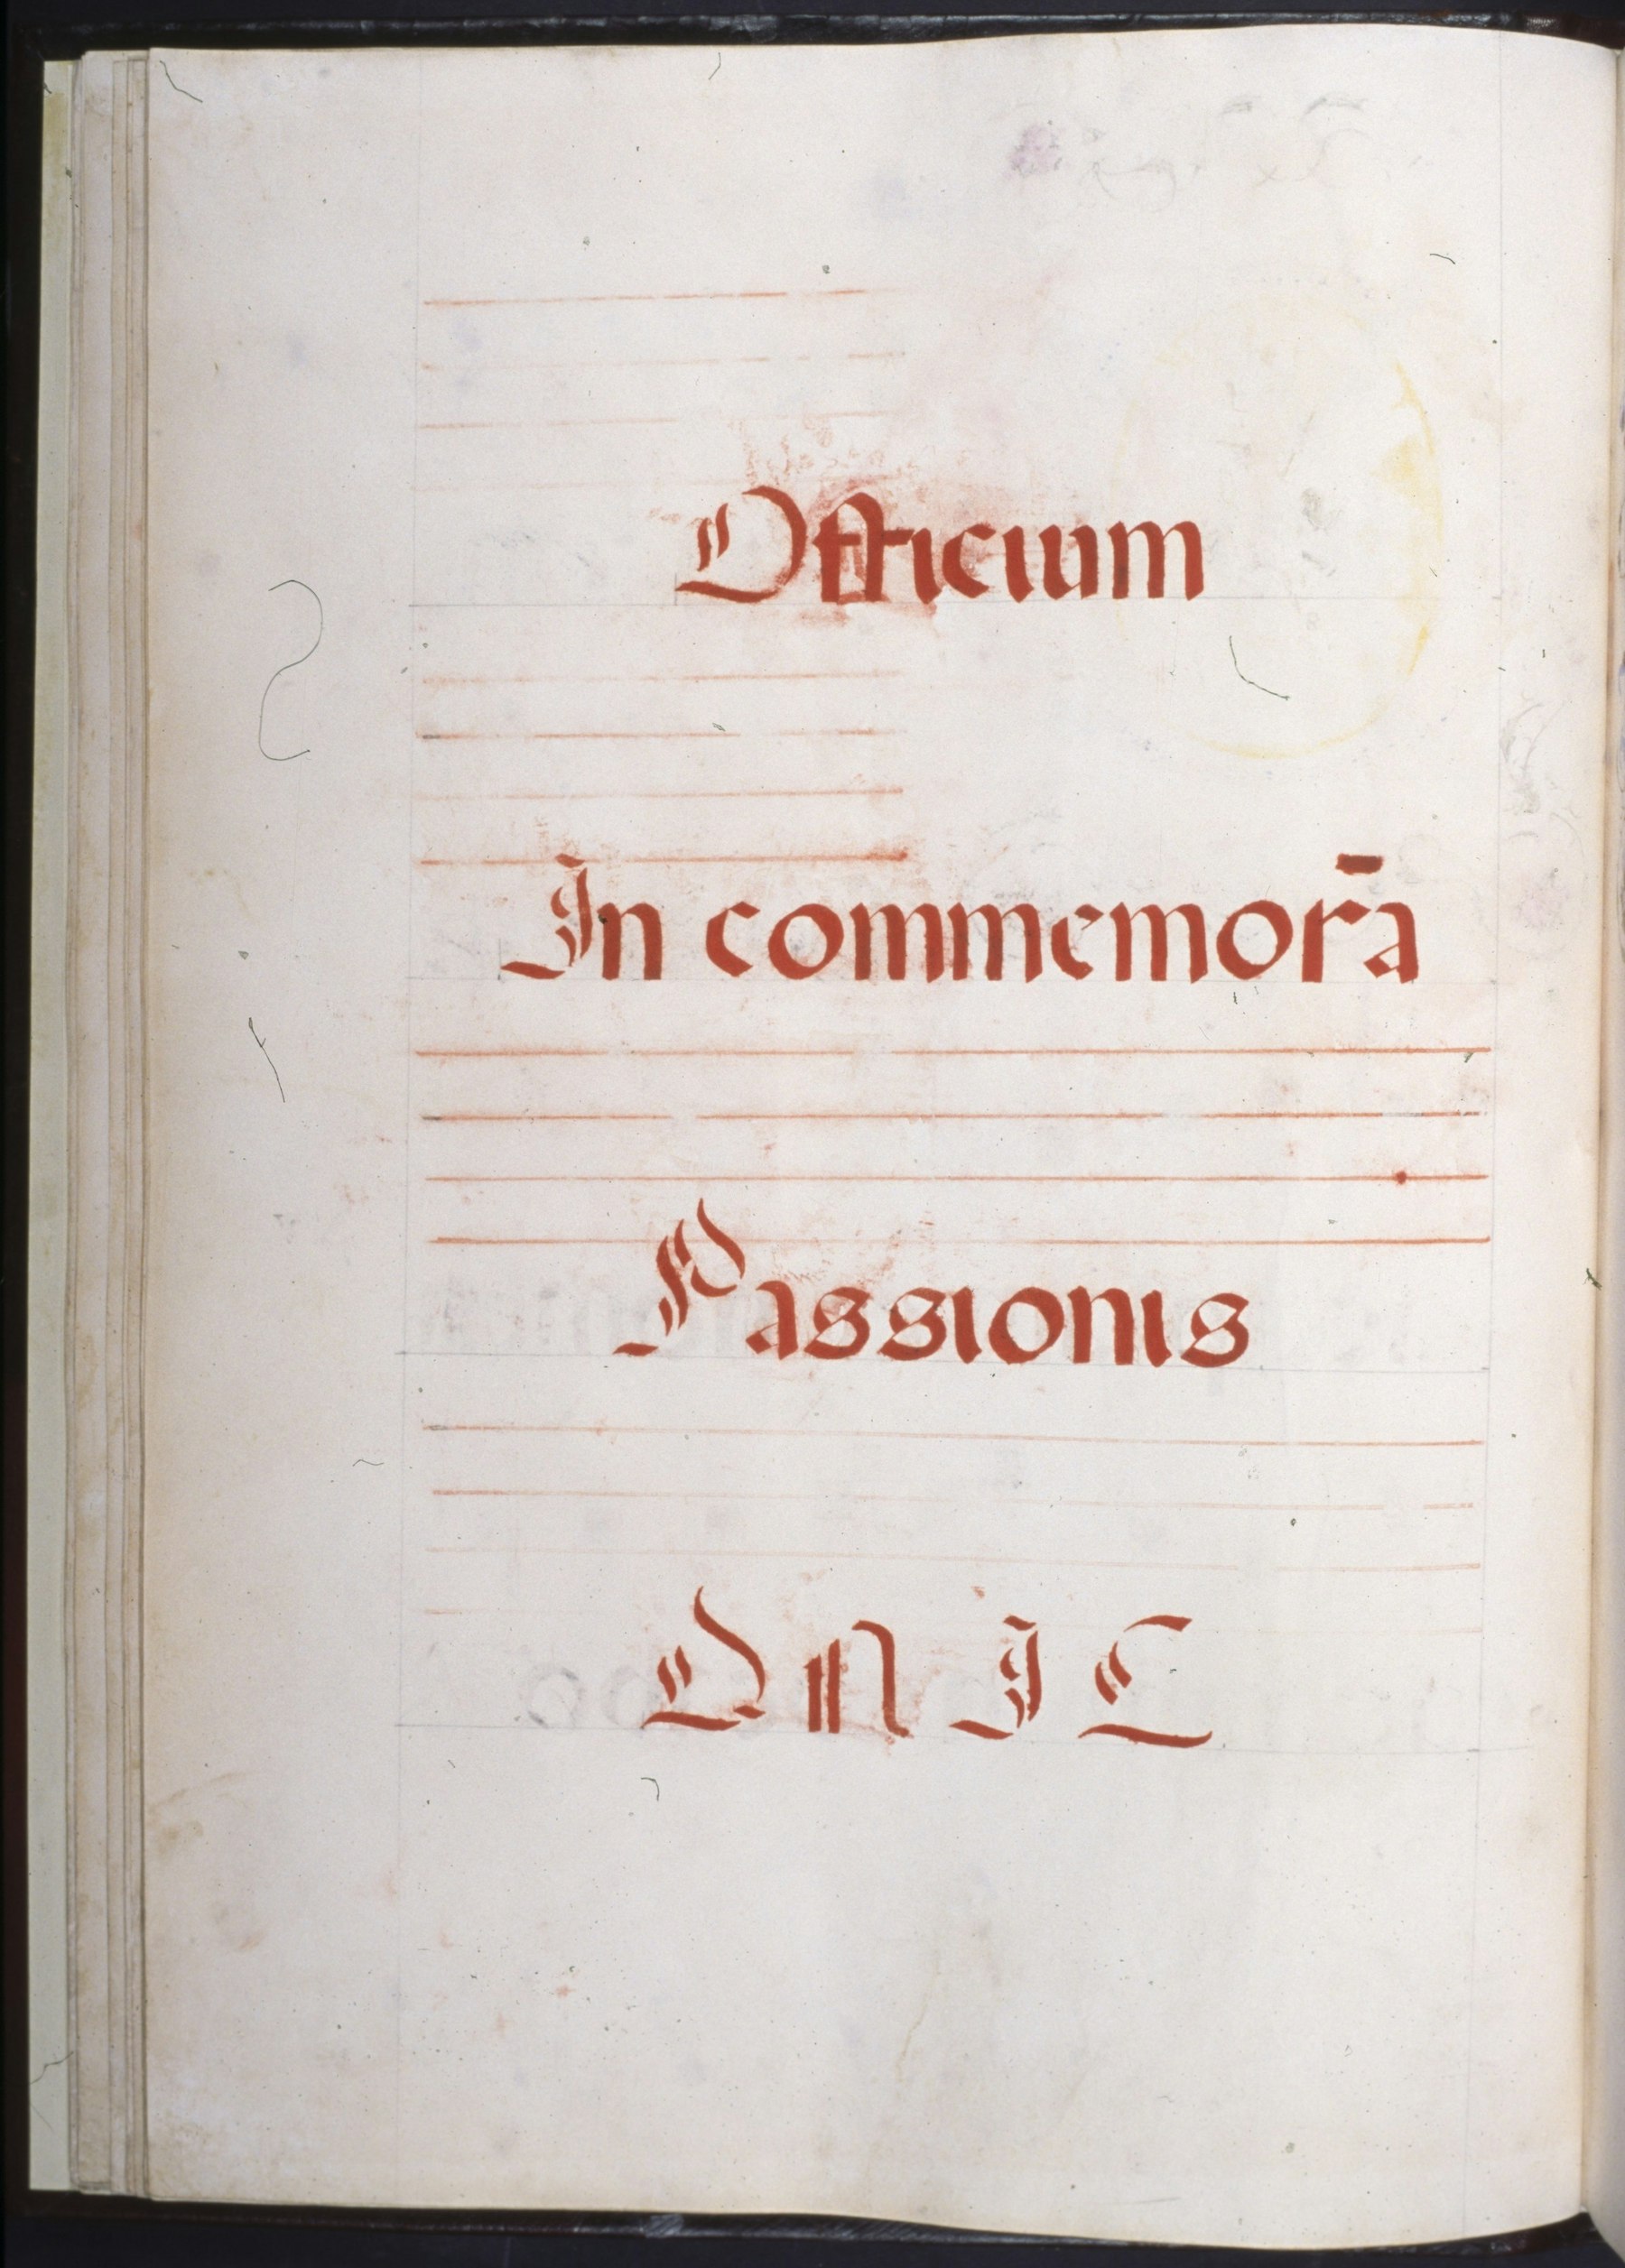 Officium
In commemorā
Passionis
D N J C